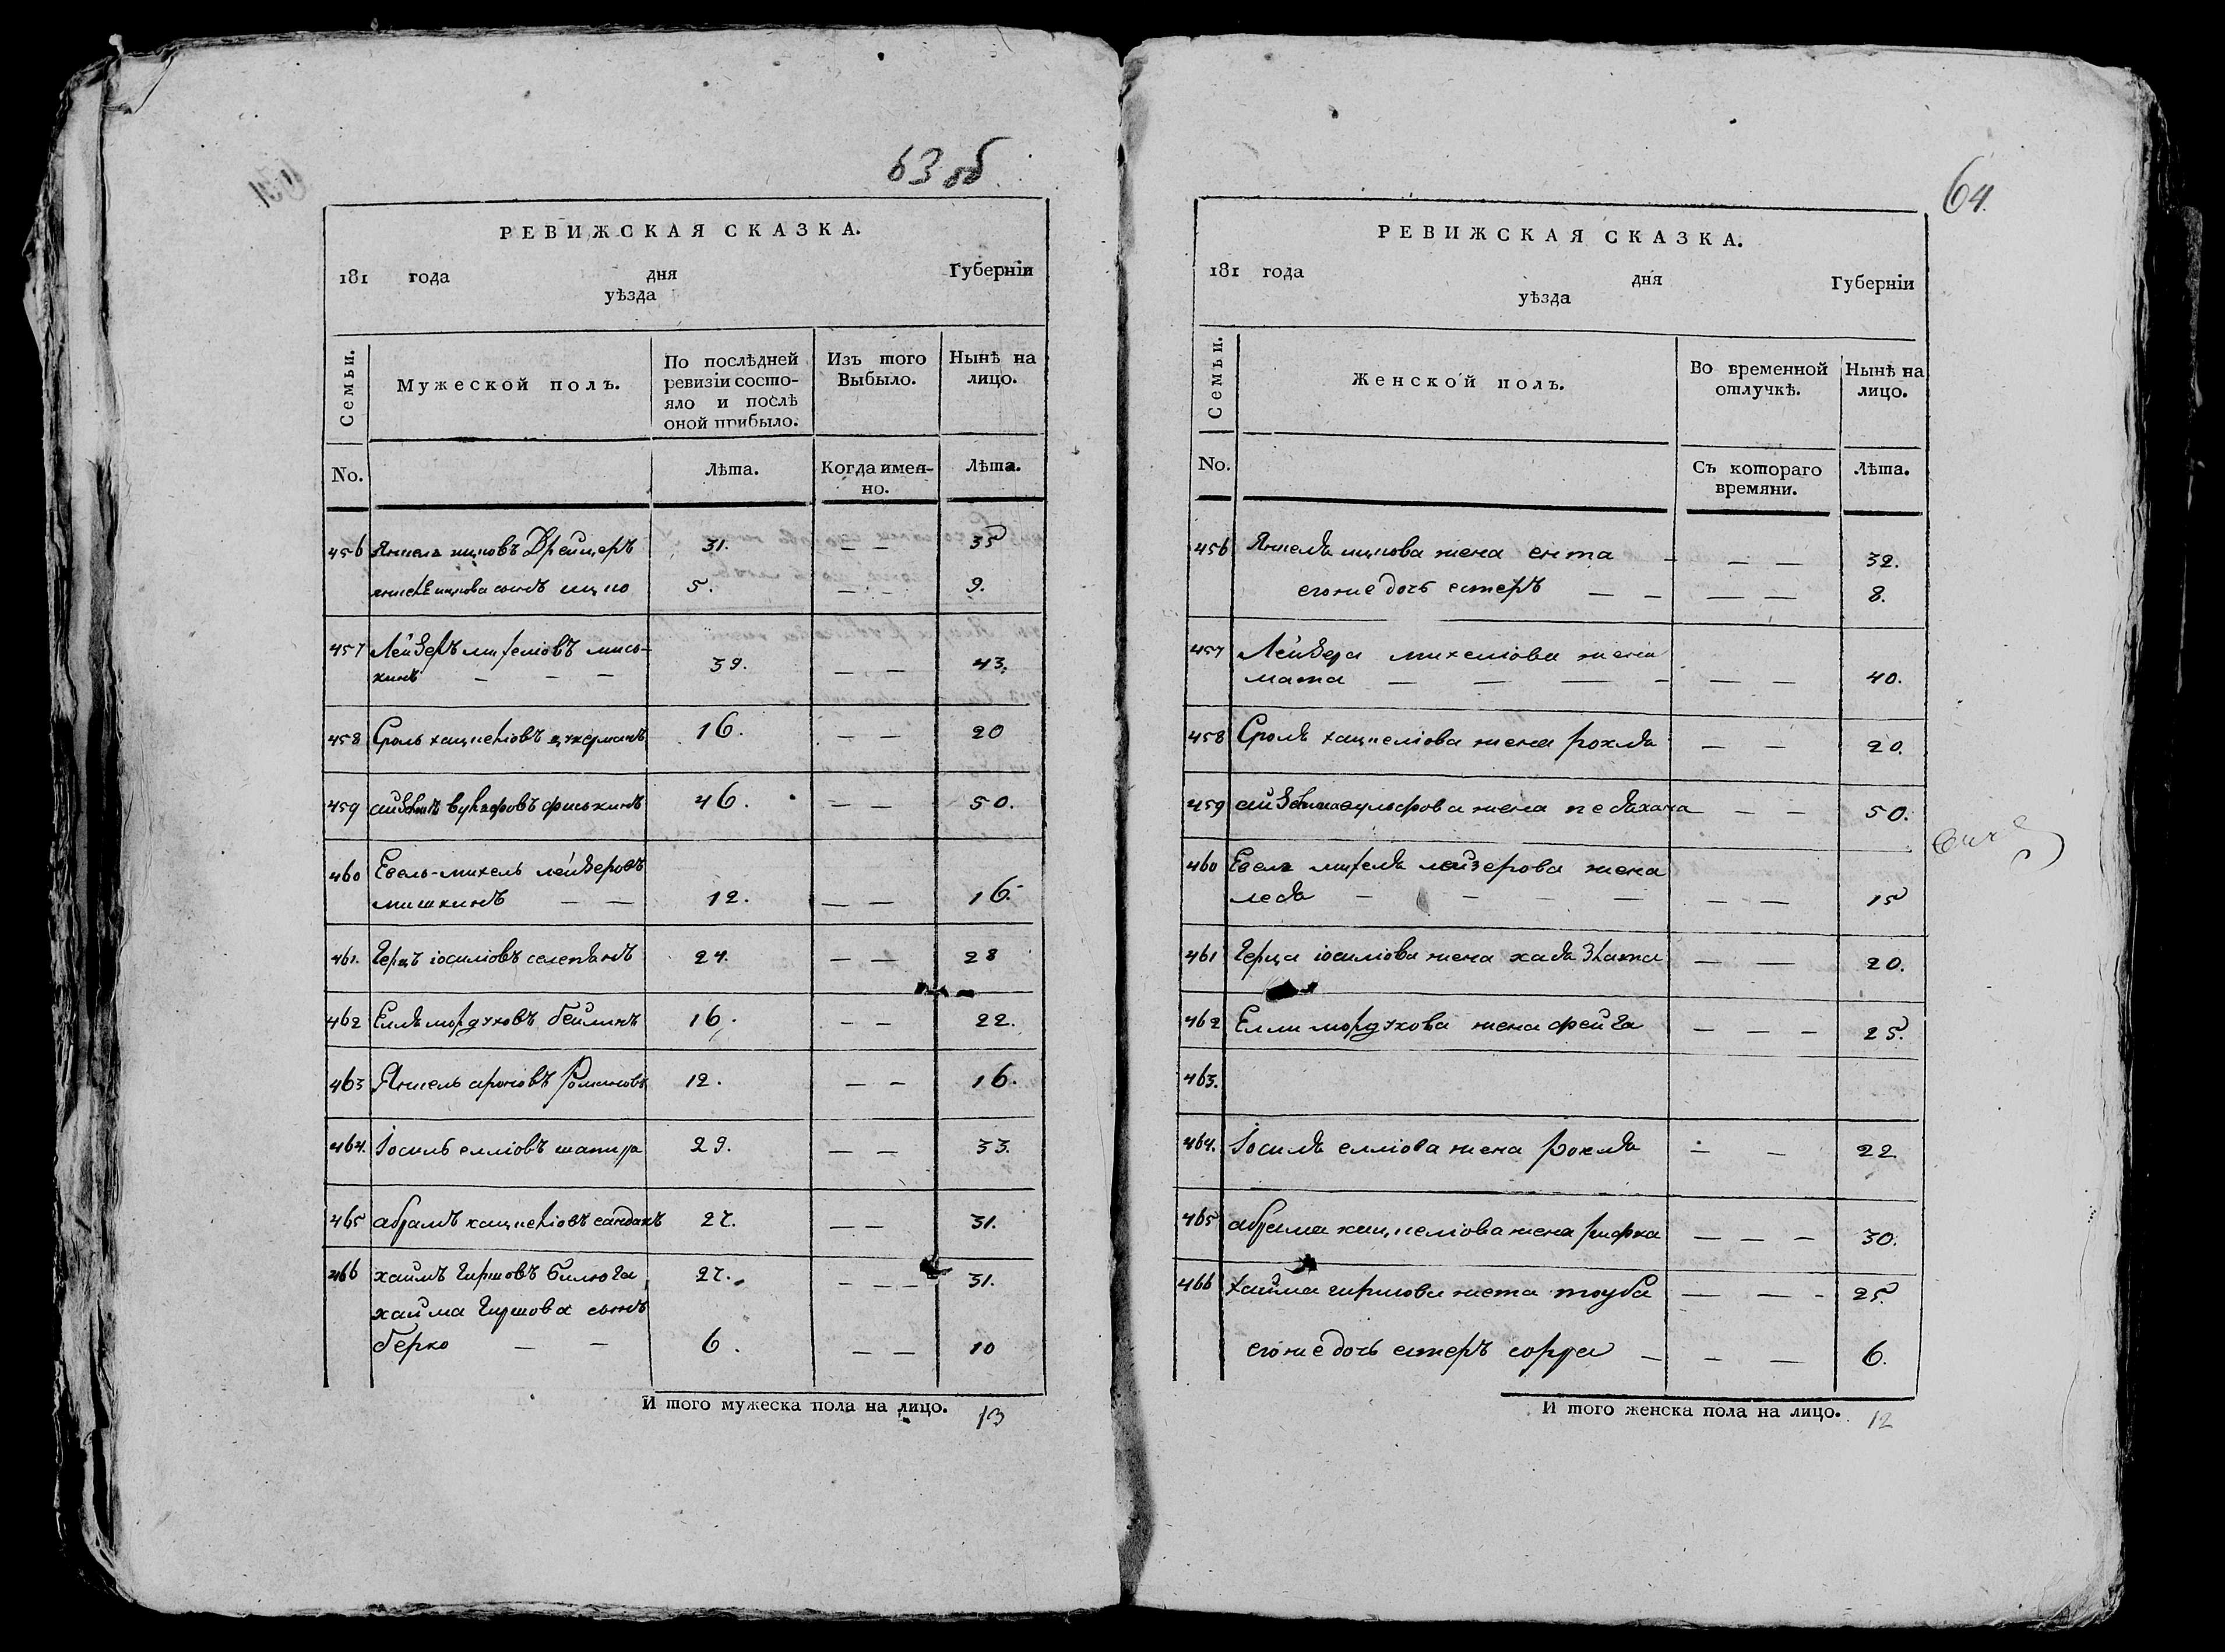 63 об
РЕВИЖСКАЯ СКАЗКА.
181 года дня Губерніи
уѣзда
Семьи.
Мужеской полъ.
По послѣдней ревизіи состо-
яло и послѣ
оной прибыло.
Изъ того
Выбыло.
Нынѣ на
лицо.
No.
Лѣта.
Когда имен-
но.
Лѣта.
456 Янкель ицковъ 31. — — 35
сынъ ицко 5. — — 9.
457 Лейзеръ михеліовъ мись-
кинъ — — — 39. — — 43.
458 Сроль хацкеліовъ цукерманъ 16. — — 20
459 вульфовъ фиськинъ 46. — — 50.
460 Евель-михель лейзеровъ
мишкинъ — — 12. — — 16.
461. Герцъ іосиліовъ 24. — — 28
462 Елль мордуховъ бейлинъ 16. — — 22.
463 Янкель ароновъ Романовъ 12. — — 16.
464. Іосиль елліовъ шапира 29. — — 33.
465 абрамъ хацкеліовъ санданъ 27. — — 31.
466 хаимъ гиршовъ билюга 27. — — — 31.
хаима гиршова сынъ
берко — — 6. — — 10
И того мужеска пола на лицо. 13
64.
РЕВИЖСКАЯ СКАЗКА.
181 года дня Губерніи
уѣзда
Семьи.
Женской полъ.
Во временной
отлучкѣ.
Нынѣ на
лицо.
No.
Съ котораго
времяни.
Лѣта.
456 Янкеля ицкова жена ента — — — 32.
его же дочь естеръ — — — — 8.
457 Лейзера михеліова жена
мата — — — — — — 40.
458 Сроля хацкеліова жена рохля — — 20.
459 вульфова жена — — 50.
460 Евеля михеля лейзерова жена
лея — — — — — — 15
461 Герца іосиліова жена хая злата — — 20.
462 Елли мордухова жена фейга — — — 25.
463.
464. Іосиля елліова жена рохля — — 22
465 абрама хацкеліова жена рифка — — — 30.
466 хайма гиршова жена тоуба — — — 25.
его же дочь естеръ сорра — — — 6.
И того женска пола на лицо. 12